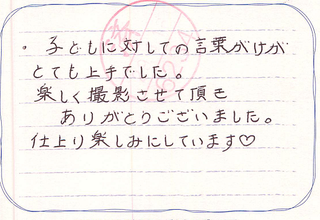 ・子どもに対しての言葉がけが
とても上手でした。
楽しく撮影させて頂き
ありがとりございました。
仕上り楽しみにしています♡